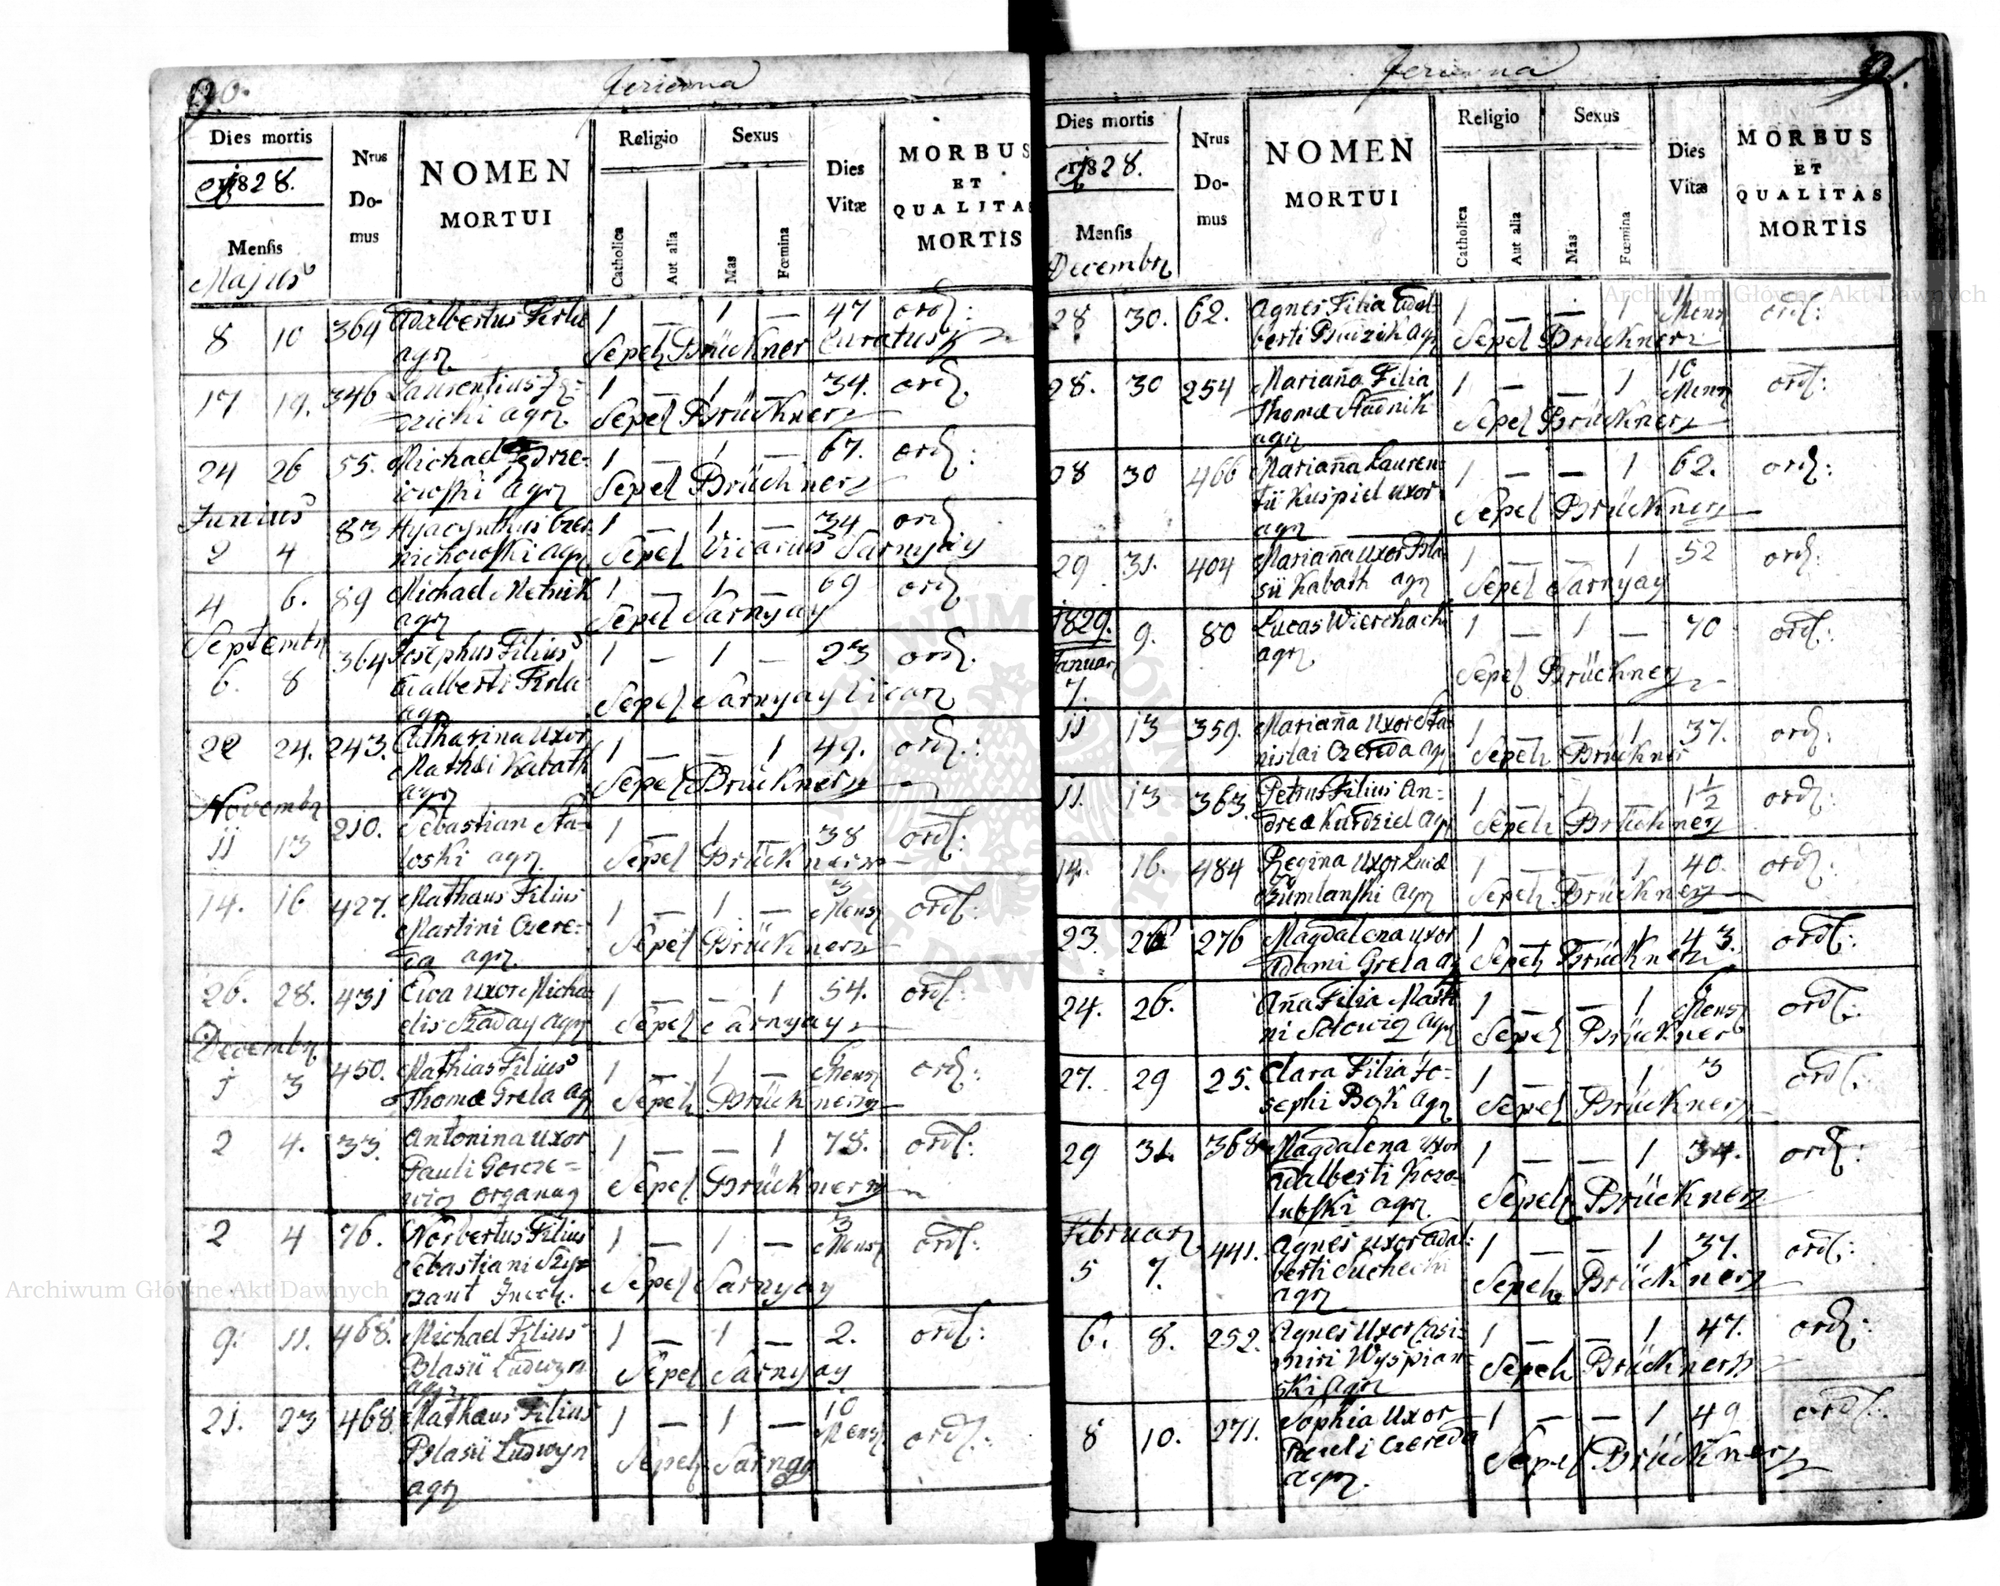 90.
Jeriorna
Dies mortis
1828.
Mensis
Majus
Nrus
Do-
mus
NOMEN
MORTUI
Religio
Catholica
Aut alia
Sexus
Mas
Fœmina
Dies
Vitæ
MORBUS
ET
QUALITAS
MORTIS
8 10 364 Adalbertus Firla 1 — 1 — 47 ord:
agr Sepel Brückner Curatus
17 19. 346 Laurentius
agr 1 — 1 — 34. ord:
Sepel Brückner
24 26 55. Michael Jedrze- 1 — 1 — 67. ord:
iowski agr Sepel Brückner
Junius
2 4 83 Hyacynthus Czer- 1 — 1 — 34 ord:
nichowski agr Sepel Vicarius Sarnyay
4 6. 89 Michael Metrik 1 — 1 — 69 ord:
agr Sepel Sarnyay
Septembr
6. 8 364 Josephus Filius 1 — 1 — 23 ord:
Adalberti Firla
agr Sepel Sarnyay Vicar
22 24. 243. Catharina Uxor 1 — — 1 49. ord:
Mathæi Kabath
agr Sepel Brückner
Novembr
11 13 210. Sebastian Sta- 1 — 1 — 38 ord:
loski agr Sepel Brückner
14. 16 427. Mathæus Filius 1 — 1 — 3 Mens ord:
Martini Czere-
da agr Sepel Brückner
26. 28. 431 Ewa Uxor Micha- 1 — — 1 54. ord:
elis Szaday agr Sepel Sarnyay
Decembr
1 3 450. Mathias Filius 1 — 1 — 6 Mens ord:
Thomæ Grela agr Sepel Brückner
2 4. 33. Antonina Uxor 1 — — 1 78. ord:
Pauli Gorcze-
wicz organ Sepel Brückner
2 4 76. Norbertus Filius 1 — 1 — 3 Mens ord:
Sebastiani
Sepel Sarnyay
9. 11. 468. Michael Filius 1 — 1 — 2. ord:
Blasii Ludwyn
agr Sepel Sarnyay
21. 23 468. Mathæus Filius 1 — 1 — 10 Mens ord:
Blasii Ludwyn
agr Sepel Sarnyay
91.
Jeriorna
Dies mortis
1828.
Mensis
Decembr
Nrus
Do-
mus
NOMEN
MORTUI
Religio
Catholica
Aut alia
Sexus
Mas
Fœmina
Dies
Vitæ
MORBUS
ET
QUALITAS
MORTIS
28 30. 62. Agnes Filia Adal- 1 — — 1 Mens ord:
berti Budzik agr Sepel Brückner
28. 30 254 Marianna Filia 1 — — 1 10 Mens ord:
Thomæ Stadnik
agr Sepel Brückner
28 30 466 Marianna Lauren- 1 — — 1 62. ord:
tii Kuspiel Uxor
agr Sepel Brückner
29 31. 404 Marianna Uxor Bla- 1 — — 1 52 ord:
sii Kabath agr Sepel Sarnyay
1829.
Januar
7. 9. 80 Lucas Wierchach 1 — 1 — 70 ord:
agr Sepel Brückner
11 13 359. Marianna Uxor Sta- 1 — — 1 37. ord:
nislai Czereda agr Sepel Brückner
11. 13 363. Petrus Filius An- 1 — 1 — 1½ ord:
dreæ Kurdziel agr Sepel Brückner
14. 16. 484 Regina Uxor Lucæ 1 — — 1 40. ord:
Bumlanski agr Sepel Brückner
23. 26 276 Magdalena Uxor 1 — — 1 43. ord:
Adami Grela agr Sepel Brückner
24. 26. Anna Filia Marti- 1 — — 1 6 Mens ord:
ni agr Sepel Brückner
27. 29 25. Clara Filia Jo- 1 — — 1 3 ord:
sephi Bek agr Sepel Brückner
29 31. 368 Magdalena Uxor 1 — — 1 34. ord:
Adalberti Kozo-
lubski agr Sepel Brückner
Februar
5 7. 441. Agnes Uxor Adal- 1 — — 1 37. ord:
berti Suchecki
agr Sepel Brückner
6. 8. 252. Agnes Uxor Casi- 1 — — 1 47. ord:
miri Wyspian-
ski agr Sepel Brückner
8 10. 271. Sophia Uxor 1 — — 1 49 ord:
Pauli Czereda
agr. Sepel Brückner
Archiwum Główne Akt Dawnych
Archiwum Główne Akt Dawnych